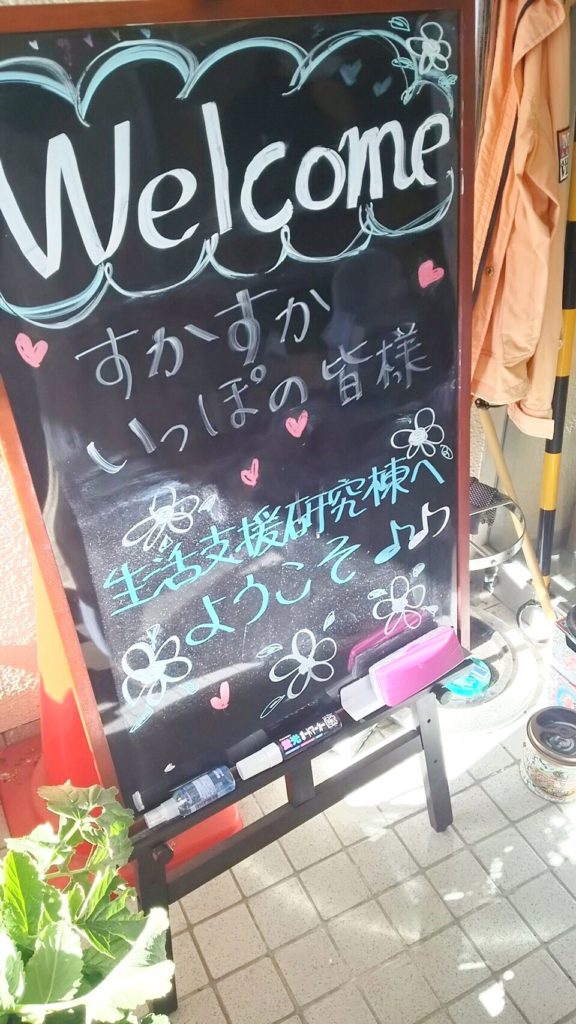 Welcome
すかすか
いっぽの皆様
生活支援研究棟へ
ようこそ♪♪